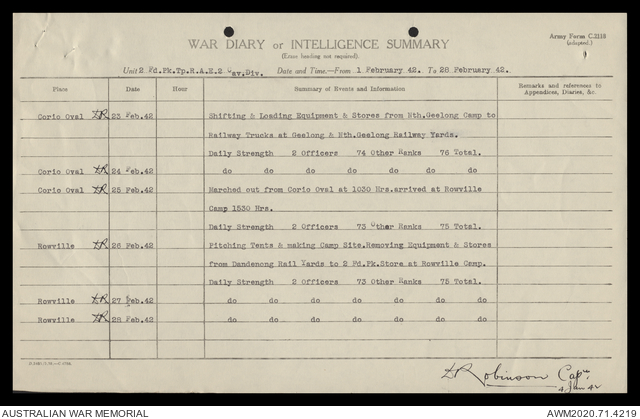 Army Form C.2118
(adapted.)
WAR DIARY or INTELLIGENCE SUMMARY
(Erase heading not required).
Unit 2 Fd.Pk.Tp.R.A.E.2 Cav.Div. Date and Time.—From 1 February 42. To 28 February 42.
Place Date Hour Summary of Events and Information Remarks and references to Appendices, Diaries, &c.
Corio Oval DR 23 Feb.42 Shifting & Loading Equipment & Stores from Nth.Geelong Camp to
Railway Trucks at Geelong & Nth.Geelong Railway Yards.
Daily Strength 2 Officers 74 Other Ranks 76 Total.
Corio Oval DR 24 Feb.42 do do do do do do do
Corio Oval DR 25 Feb.42 Marched out from Corio Oval at 1030 Hrs.arrived at Rowville
Camp 1530 Hrs.
Daily Strength 2 Officers 73 Other Ranks 75 Total.
Rowville DR 26 Feb.42 Pitching Tents & making Camp Site.Removing Equipment & Stores
from Dandenong Rail Yards to 2 Fd.Pk.Store at Rowville Camp.
Daily Strength 2 Officers 73 Other Ranks 75 Total.
Rowville DR 27 Feb.42 do do do do do do do
Rowville DR 28 Feb.42 do do do do do do do
DRobinson Capt.
4 Jun 42
AUSTRALIAN WAR MEMORIAL
AWM2020.71.4219